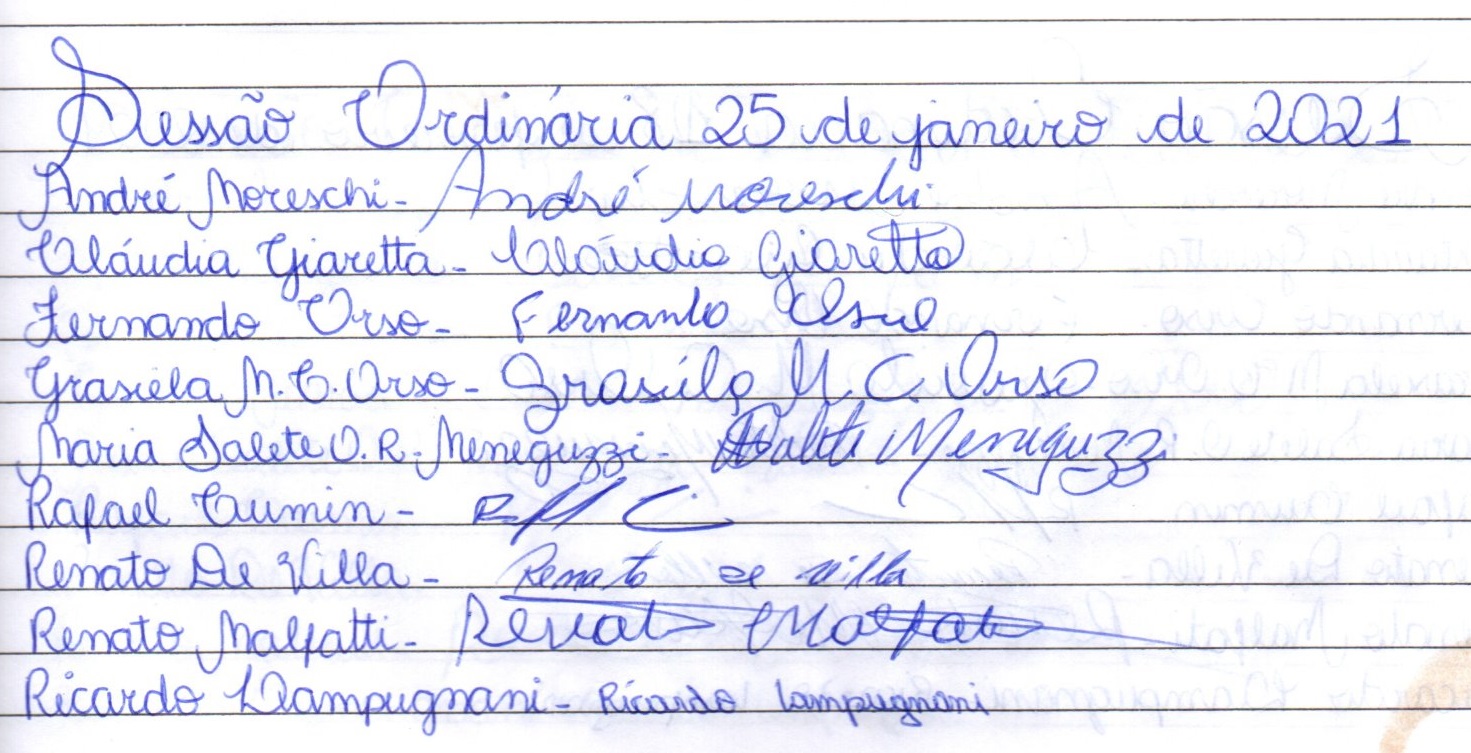 Sessão Ordinária 25 de janeiro de 2021
André Moreschi - André Moreschi
Cláudia Giaretta - Cláudia Giaretta
Fernando Orso - Fernando Orso
Grasiela M. C. Orso - Grasiela M. C. Orso
Maria Salete O. R. Meneguzzi - Salete Meneguzzi
Rafael Cumin -
Renato De Villa - Renato de villa
Renato Malfatti - Renato Malfatti
Ricardo Lampugnani - Ricardo Lampugnani